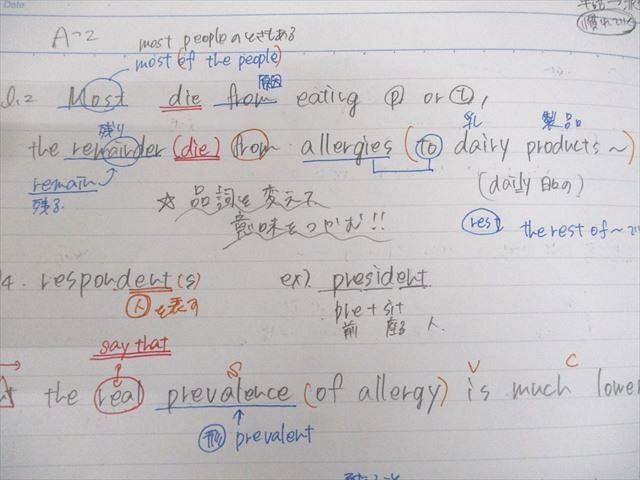 Date
慣れていく
A-2
most peopleのときもある
most (of the people)
原因
l.2 Most die from eating ⓟ or ⓣ,
残り
乳 製品
the remainder (die) from allergies (to dairy products ~)
remain
残る
(daily 日々の)
☆ 品詞を変えて
意味をつかむ!!
rest the rest of ~
4. respondent(s)
人 を表す
ex) president
pre + sit
前 座る 人
say that
S V C
the real prevalence (of allergy) is much lower
形 prevalent